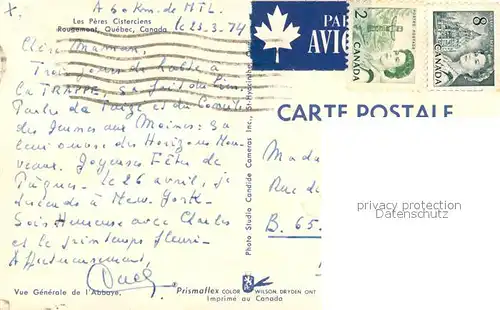 X,
A 60 Km. de MTL.
Les Pères Cisterciens
Rougemont, Québec, Canada
le 23-3-74
Chère Maman,
Trois jours de halte à
la TRAPPE, ça fait du bien.
Parler de Taizé et du Concile
des Jeunes aux Moines: ça
leur ouvre des Horizons Nou-
veaux. Joyeuses Fêtes de
Pâques. Le 26 avril, je
descends à New-York.
Sois Heureuse avec Charles
et le printemps fleuri.
Affectueusement,
Vue Générale de l'Abbaye,
PAR
AVIO
2
CANADA
POSTES POSTAGE
8
CANADA
CARTE POSTALE
Mada
Rue d
B. 65.
privacy protection
Datenschutz
Photo Studio Candide Cameras Inc., St-Hyacinthe,
Prismaflex COLOR WILSON, DRYDEN ONT
Imprimé au Canada